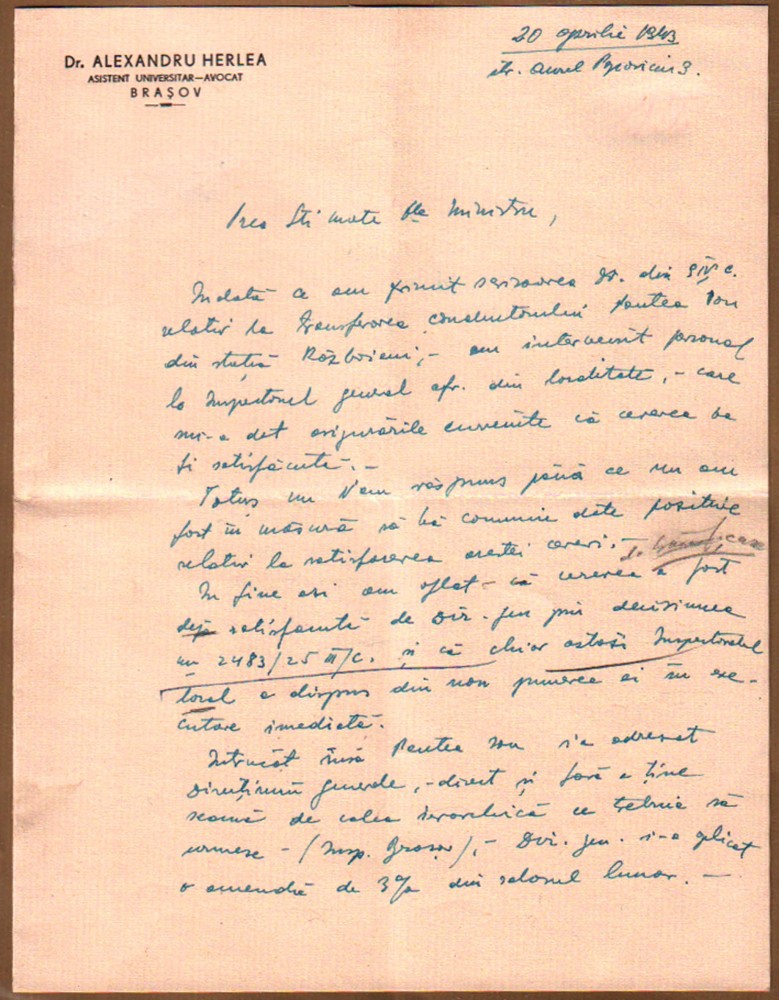 Dr. ALEXANDRU HERLEA
ASISTENT UNIVERSITAR—AVOCAT
BRAȘOV
20 aprilie 1943
str. Aurel Popovici 3.
Prea Stimate Dle Ministru,
Indată ce am primit scrisoarea Dv. din 9 IV c.
relativ la transferarea conductorului Pantea Ion
din stația Războieni, – am intervenit personal
la Inspectorul general cfr. din localitate, – care
mi-a dat asigurările cuvenite că cererea va
fi satisfăcută. –
Totuș nu V'am răspuns până ce nu am
fost în măsură să vă comunic date pozitive
relativ la satisfacerea acestei cereri. –
In fine azi am aflat – că cererea a fost
deja satisfăcută de Dir. gen prin decisiunea
nr 2483/25 III/c. și că chiar astăzi Inspectoratul
local a dispus din nou punerea ei în exe-
cutare imediată.
Intrucât însă Pantea Ion s'a adresat
Direcțiunii generale, – direct și fără a ține
seamă de calea ierarhică ce trebuia să
urmeze – (Insp. Brașov), – Dir. gen. i-a aplicat
o amendă de 3% din salarul lunar. –